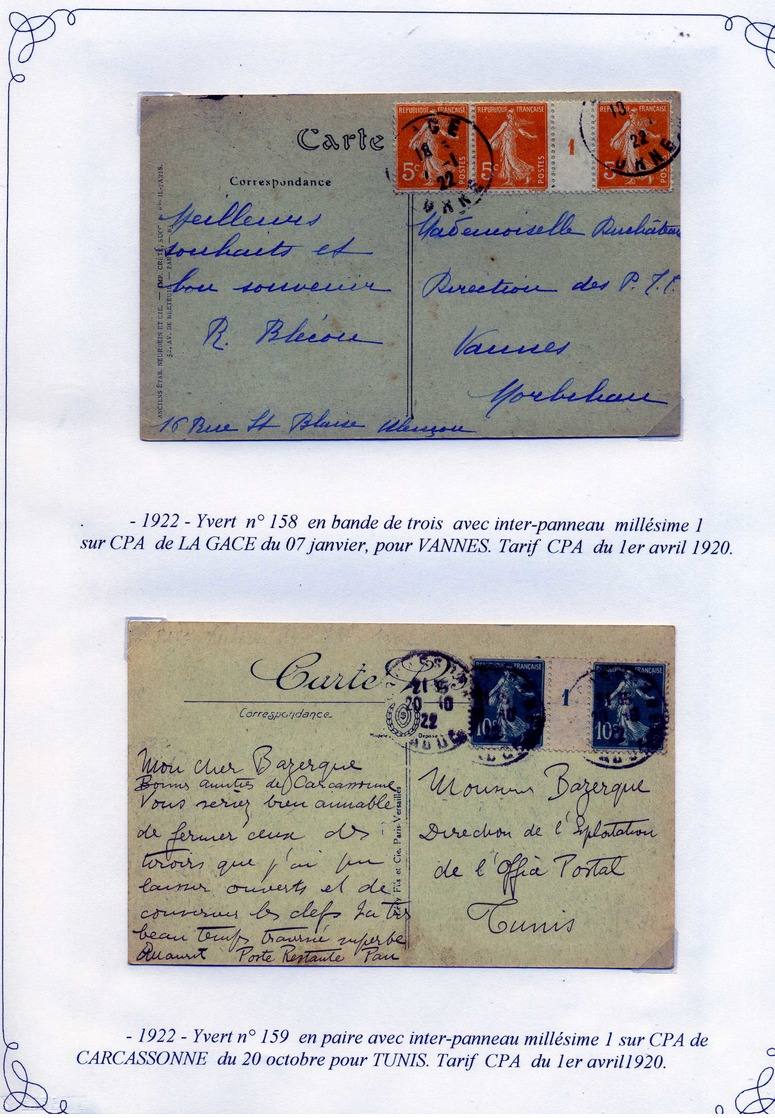 Carte
Correspondance
RÉPUBLIQUE FRANÇAISE
5c
POSTES
RÉPUBLIQUE FRANÇAISE
5c
POSTES
1
RÉPUBLIQUE FRANÇAISE
5c
POSTES
CE
18
22
ORNE
22
ORNE
ANCIENS ÉTAB. NEURDEIN ET CIE. — IMP. CRÉTÉ, SUCC
52, AV. DE BRETEUIL — PARIS
Meilleurs
souhaits et
bon souvenir
R. Blécon
16 Rue St Blaise Alençon
Mademoiselle Duchâteau
Direction des P. T. T.
Vannes
Morbihan
. - 1922 - Yvert n° 158 en bande de trois avec inter-panneau millésime 1
sur CPA de LA GACE du 07 janvier, pour VANNES. Tarif CPA du 1er avril 1920.
Carte
Correspondance
21 15
20-10
22
AUDE
10c
1
10c
Mon cher Bazerque
Bonnes amitiés de Carcassonne
Vous seriez bien aimable
de fermer ceux des
tiroirs que j'ai pu
laisser ouverts et de
conserver les clefs
beau temps traversée superbe
Poste Restante Pau
Fils et Cie, Paris-Versailles
Monsieur Bazerque
Direction de l'Exploitation
de l'Office Postal
Tunis
- 1922 - Yvert n° 159 en paire avec inter-panneau millésime 1 sur CPA de
CARCASSONNE du 20 octobre pour TUNIS. Tarif CPA du 1er avril1920.